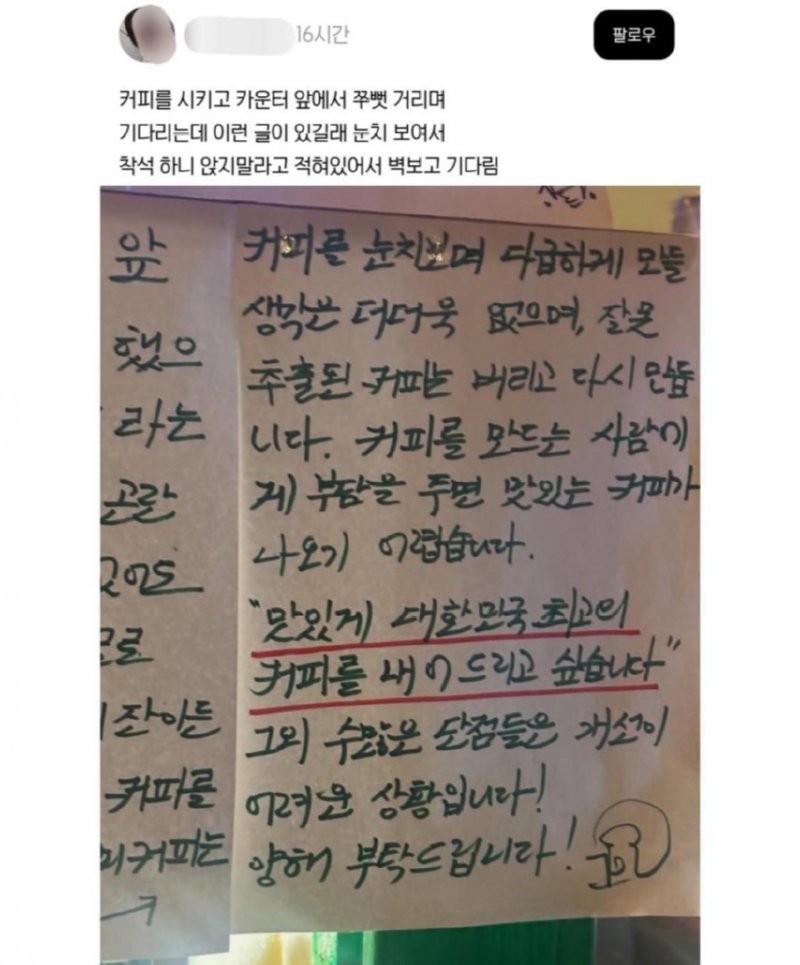 16시간
팔로우
커피를 시키고 카운터 앞에서 쭈뼛 거리며
기다리는데 이런 글이 있길래 눈치 보여서
착석 하니 앉지말라고 적혀있어서 벽보고 기다림
앞
했으
라는
곤란
모로
잔이든
커피를
커피는
→
커피를 눈치보며 다급하게 만들
생각은 더더욱 없으며, 잘못
추출된 커피는 버리고 다시 만듭
니다. 커피를 만드는 사람에
게 부담을 주면 맛있는 커피가
나오기 어렵습니다.
"맛있게 대한민국 최고의
커피를 내어 드리고 싶습니다"
그외 수많은 단점들은 개선이
어려운 상황입니다!
양해 부탁드립니다!